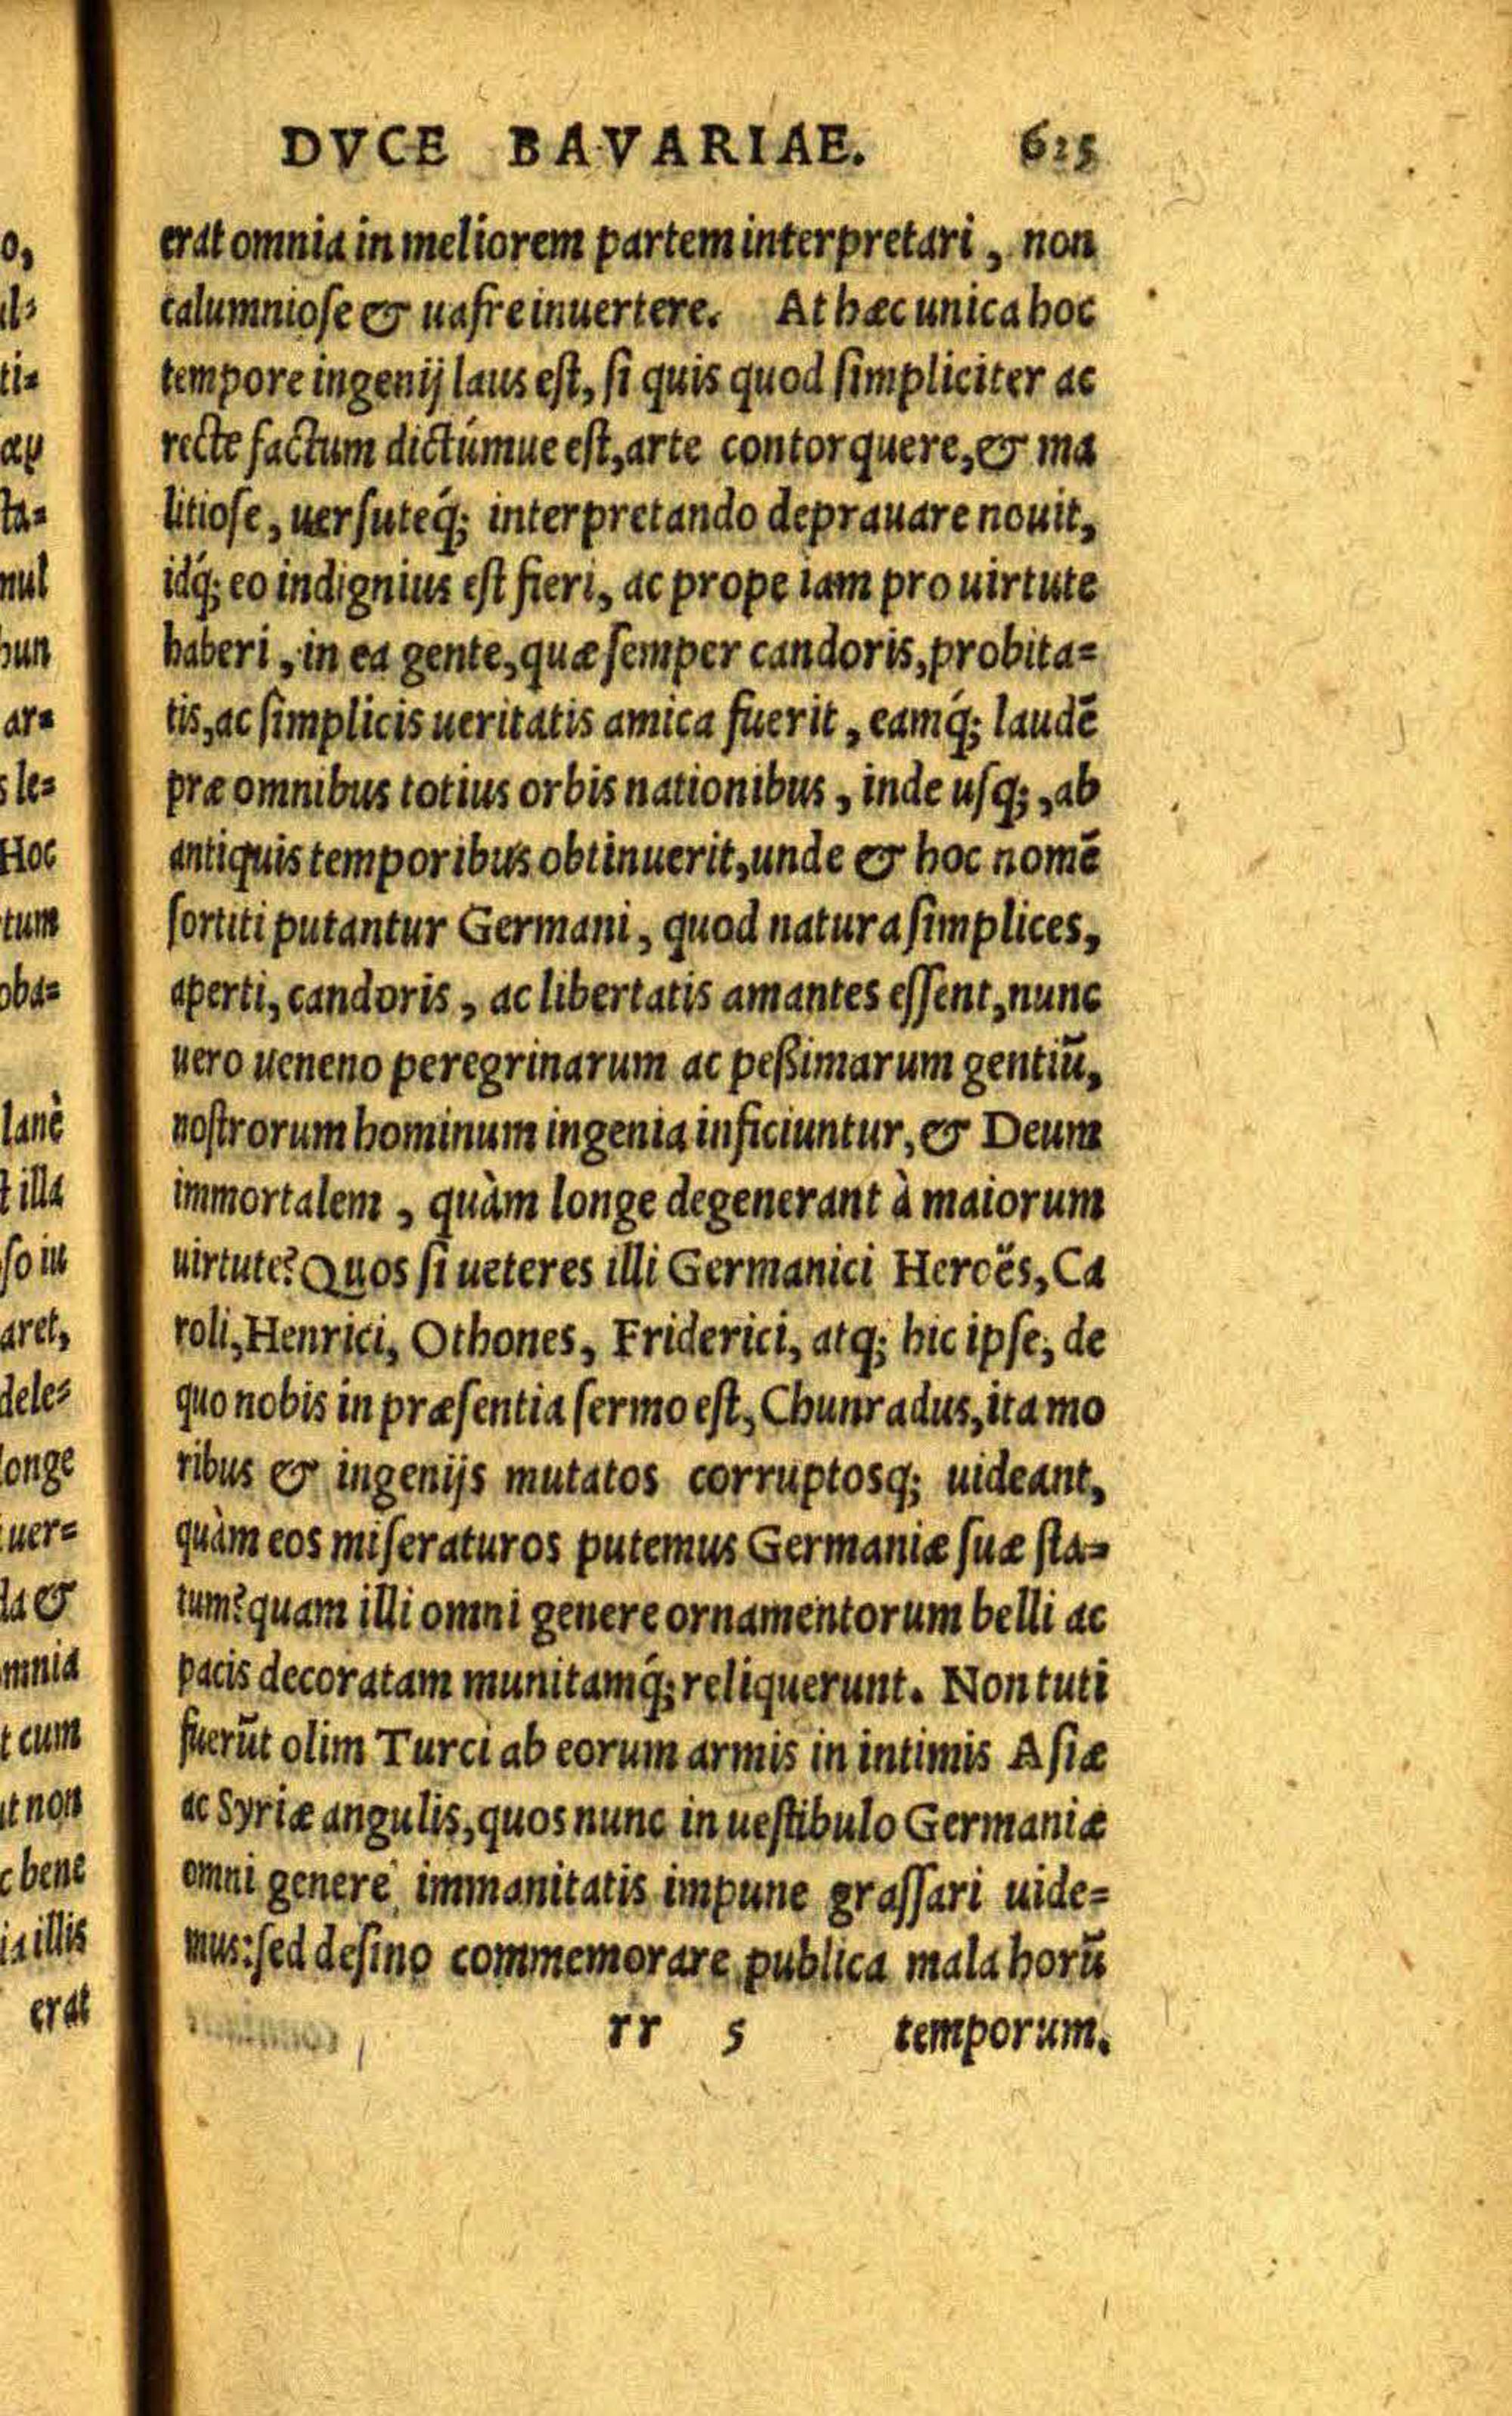 DVCE BAVARIAE. 625
erat omnia in meliorem partem interpretari, non
calumniose & uafre inuertere. At hæc unica hoc
tempore ingenij laus est, si quis quod simpliciter ac
recte factum dictúmue est, arte contorquere, & ma
litiose, uersuteq́; interpretando deprauare nouit,
idq́; eo indignius est fieri, ac prope iam pro uirtute
haberi, in ea gente, quæ semper candoris, probita=
tis, ac simplicis ueritatis amica fuerit, eamq́; laudē
præ omnibus totius orbis nationibus, inde usq;, ab
antiquis temporibus obtinuerit, unde & hoc nomē
sortiti putantur Germani, quod natura simplices,
aperti, candoris, ac libertatis amantes essent, nunc
uero ueneno peregrinarum ac peßimarum gentiū,
nostrorum hominum ingenia inficiuntur, & Deum
immortalem, quàm longe degenerant à maiorum
uirtute? Quos si ueteres illi Germanici Heroës, Ca
roli, Henrici, Othones, Friderici, atq; hic ipse, de
quo nobis in præsentia sermo est, Chunradus, ita mo
ribus & ingenijs mutatos corruptosq; uideant,
quàm eos miseraturos putemus Germaniæ suæ sta=
tum? quam illi omni genere ornamentorum belli ac
pacis decoratam munitamq́; reliquerunt. Non tuti
fuerūt olim Turci ab eorum armis in intimis Asiæ
ac Syriæ angulis, quos nunc in uestibulo Germaniæ
omni genere immanitatis impune grassari uide=
mus: sed desino commemorare publica mala horū
rr 5 temporum.